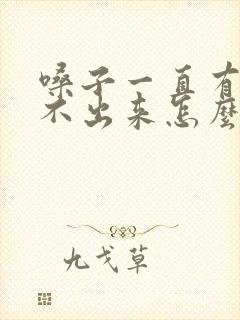 嗓子一直有
不出来怎麼
九戈草